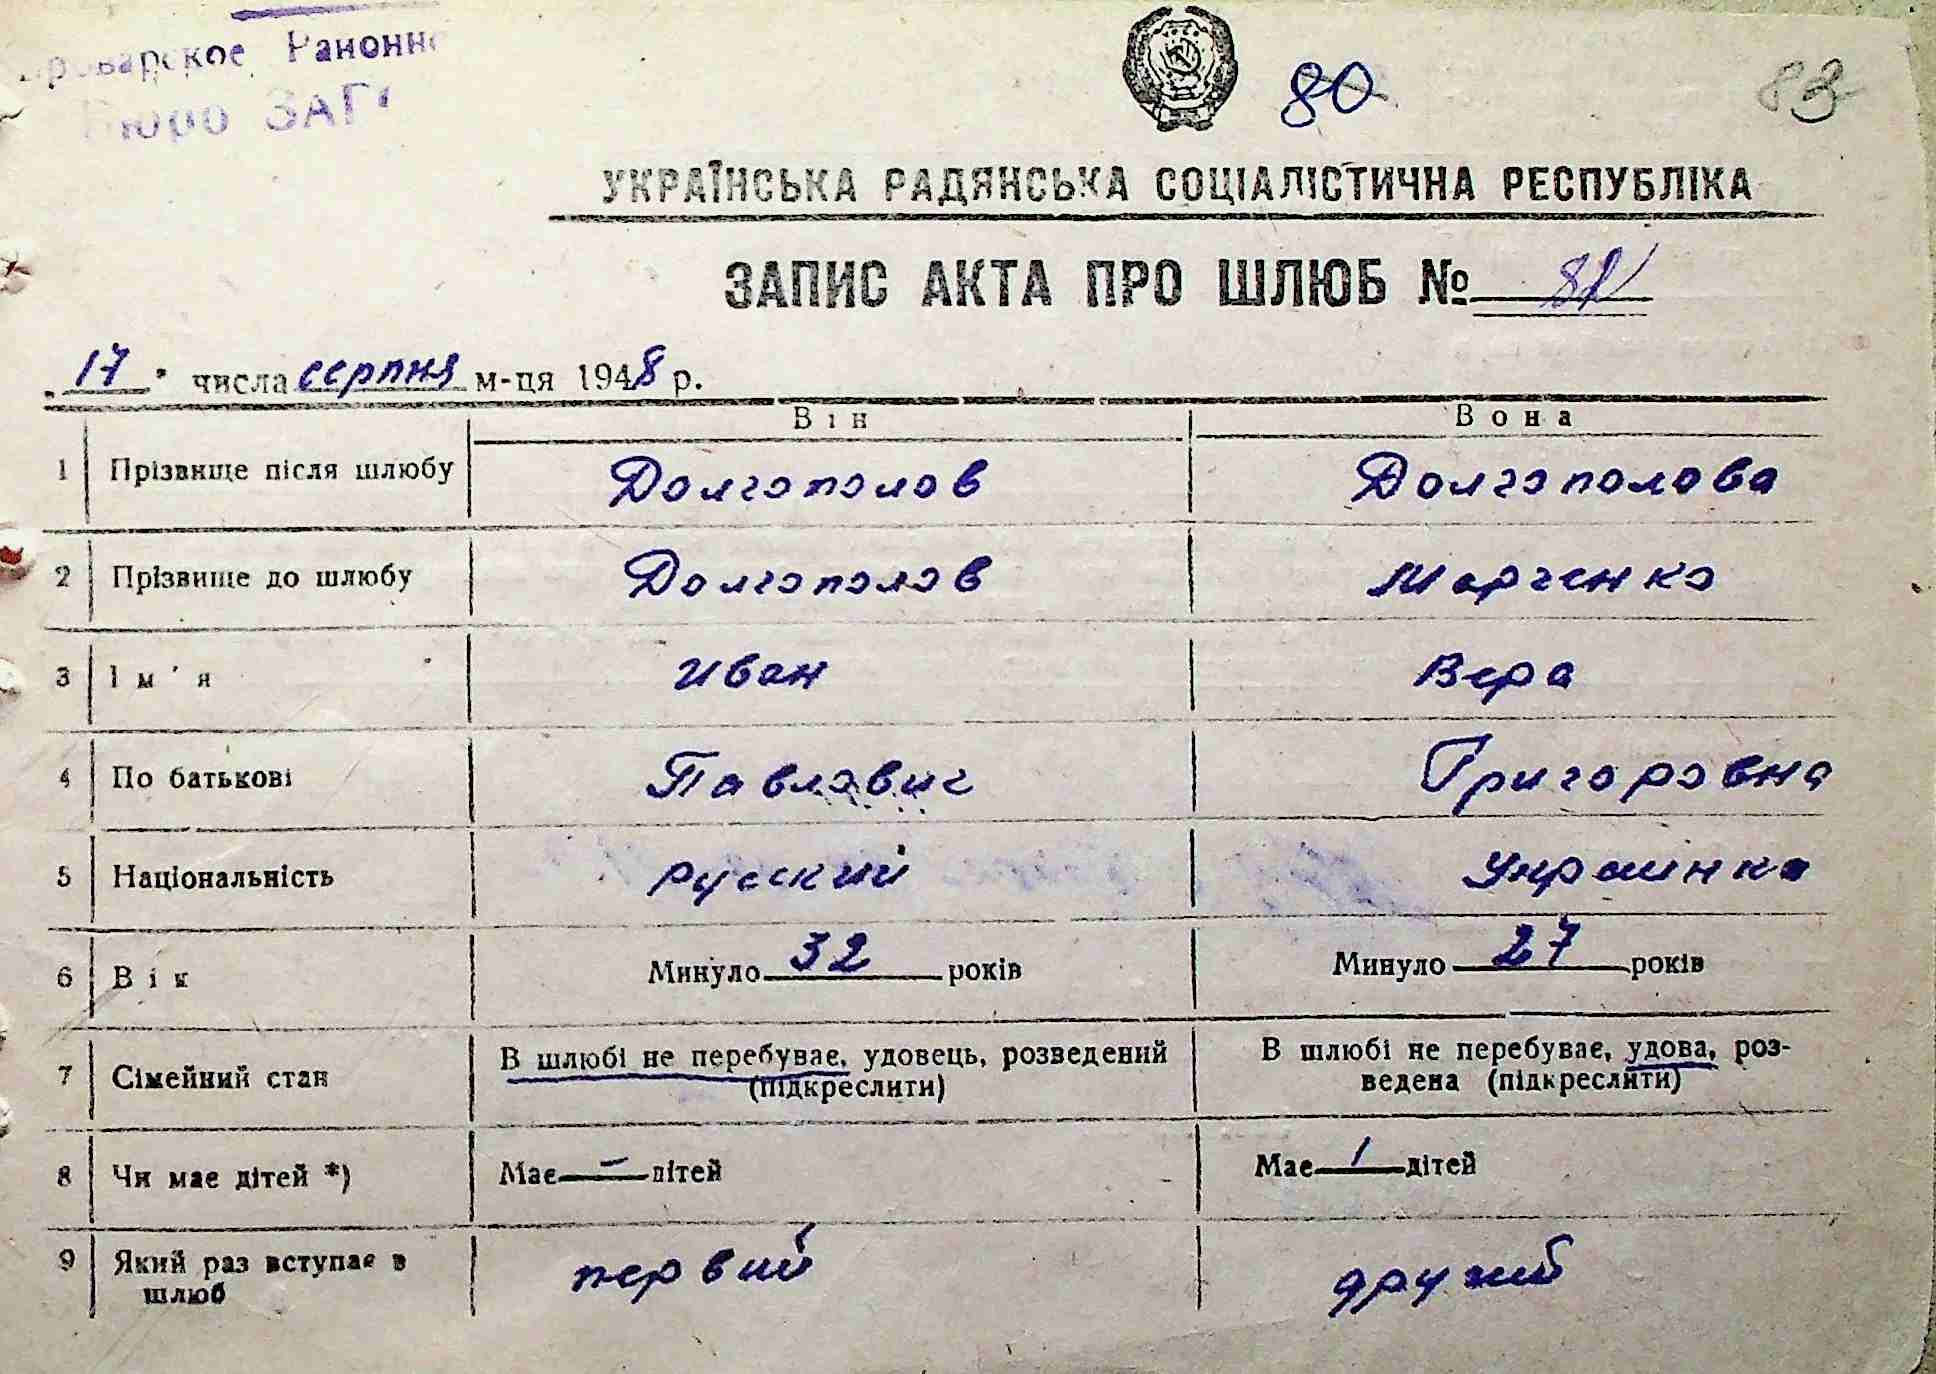 Броварское Районное
Бюро ЗАГС
80
83
УКРАЇНСЬКА РАДЯНСЬКА СОЦІАЛІСТИЧНА РЕСПУБЛІКА
ЗАПИС АКТА ПРО ШЛЮБ №
„17" числа серпня м-ця 1948 р.
Він Вона
1 Прізвище після шлюбу Долгополов Долгополова
2 Прізвище до шлюбу Долгополов Марченко
3 Ім'я Иван Вера
4 По батькові Павлович Григоровна
5 Національність русский Украинка
6 Вік Минуло 32 років Минуло 27 років
7 Сімейний стан В шлюбі не перебуває, удовець, розведений В шлюбі не перебуває, удова, роз-
(підкреслити) ведена (підкреслити)
8 Чи має дітей *) Має — дітей Має 1 дітей
9 Який раз вступає в первий другий
шлюб